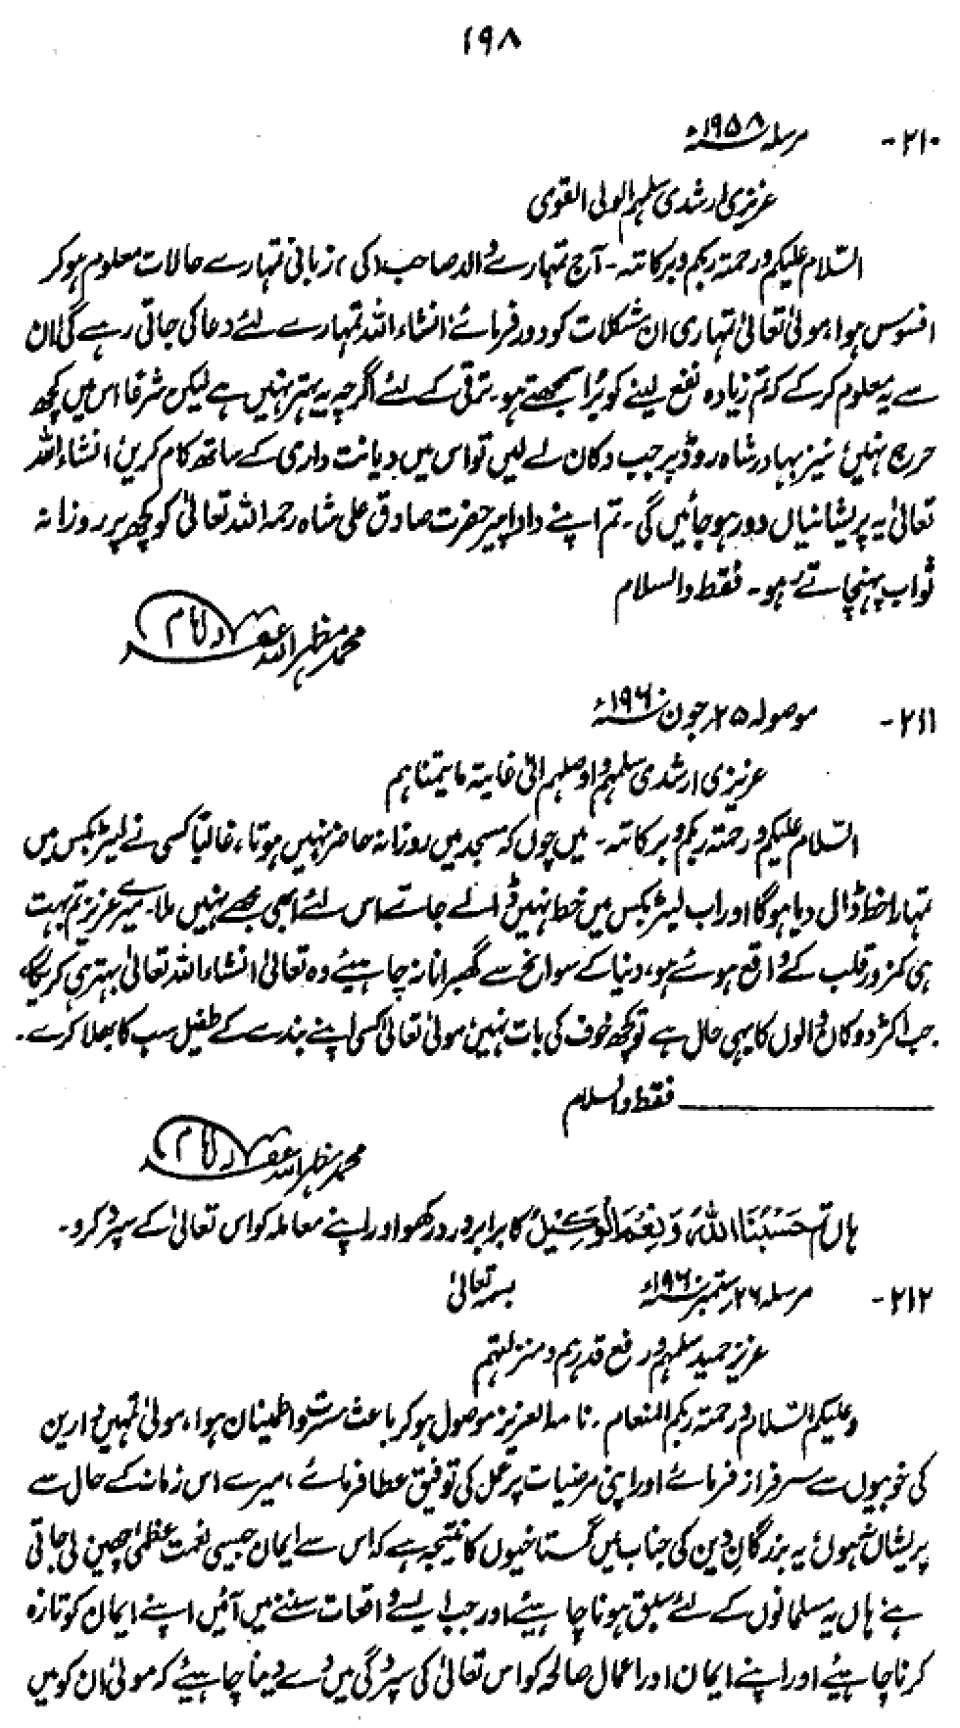 ۱۹۸
۲۱۰- مرسلہ ۱۹۵۸ء
عزیزی ارشدی سلمہم الولی القوی
السلام علیکم ورحمتہ ربکم وبرکاتہ۔ آج تمہارے والد صاحب (کی) زبانی تمہارے حالات معلوم ہوکر
افسوس ہوا، مولیٰ تعالیٰ تمہاری ان مشکلات کو دور فرمائے، انشاء اللہ تمہارے لئے دعا کی جاتی رہے گی، ان
سے یہ معلوم کرکے کہ تم زیادہ نفع لینے کو بُرا سمجھتے ہو۔ ترقی کے لئے اگرچہ یہ بہتر نہیں ہے لیکن شرفا اس میں کچھ
حرج نہیں، نیز بہادر شاہ روڈ پر جب دکان لے لیں تو اس میں دیانت داری کے ساتھ کام کریں، انشاء اللہ
تعالیٰ یہ پریشانیاں دور ہوجائیں گی۔ تم اپنے دادا پیر حضرت صادق علی شاہ رحمہ اللہ تعالیٰ کو کچھ پر روزانہ
ثواب پہنچاتے رہو۔ فقط والسلام
محمد مظہر اللہ غفرلہ
۲۱۱- موصولہ ۲۵ جون ۱۹۶۰ء
عزیزی ارشدی سلمہم واوصلہم الیٰ غایۃ مایتمناہم
السلام علیکم ورحمتہ ربکم وبرکاتہ۔ میں چوں کہ مسجد میں روزانہ حاضر نہیں ہوتا، غالباً کسی نے لیٹر بکس میں
تمہارا خط ڈال دیا ہوگا اور اب لیٹر بکس میں خط نہیں ڈالے جاتے اس لئے ابھی مجھے نہیں ملا۔ میرے عزیز تم بہت
ہی کمزور قلب کے واقع ہوئے ہو، دنیا کے سوانح سے گھبرانا نہ چاہیئے وہ تعالیٰ انشاء اللہ تعالیٰ بہتر ہی کریگا،
جب اکثر دوکان والوں کا یہی حال ہے تو کچھ خوف کی بات نہیں، مولیٰ تعالیٰ کسی اپنے بندے کے طفیل سب کا بھلا کرے۔
فقط والسلام
محمد مظہر اللہ غفرلہ
ہاں تم حَسْبُنَا اللّٰهُ وَنِعْمَ الْوَكِيْلُ کا برابر ورد رکھو اور اپنے معاملہ کو اس تعالیٰ کے سپرد کرو۔
۲۱۲- مرسلہ ۲۶ ستمبر ۱۹۶۰ء بسمہ تعالیٰ
عزیز حمید سلمہم ورفع قدرہم ومنزلتہم
وعلیکم السلام ورحمتہ ربکم المنعام۔ نامہ العزیز موصول ہوکر باعث مسرت واطمینان ہوا، مولیٰ تمہیں دارین
کی خوبیوں سے سرفراز فرمائے اور اپنی مرضیات پر عمل کی توفیق عطا فرمائے، میرے اس زمانہ کے حال سے
پریشان نہ ہوں، یہ بزرگانِ دین کی جناب میں گستاخیوں کا نتیجہ ہے کہ اس سے ایمان جیسی نعمت عظمیٰ چھین لی جاتی
ہے، ہاں یہ مسلمانوں کے لئے سبق ہونا چاہیئے اور جب ایسے واقعات سننے میں آئیں اپنے ایمان کو تازہ
کرنا چاہیئے اور اپنے ایمان اور اعمال صالحہ کو اس تعالیٰ کی سپردگی میں دے دینا چاہیئے کہ مولیٰ ان کو میں